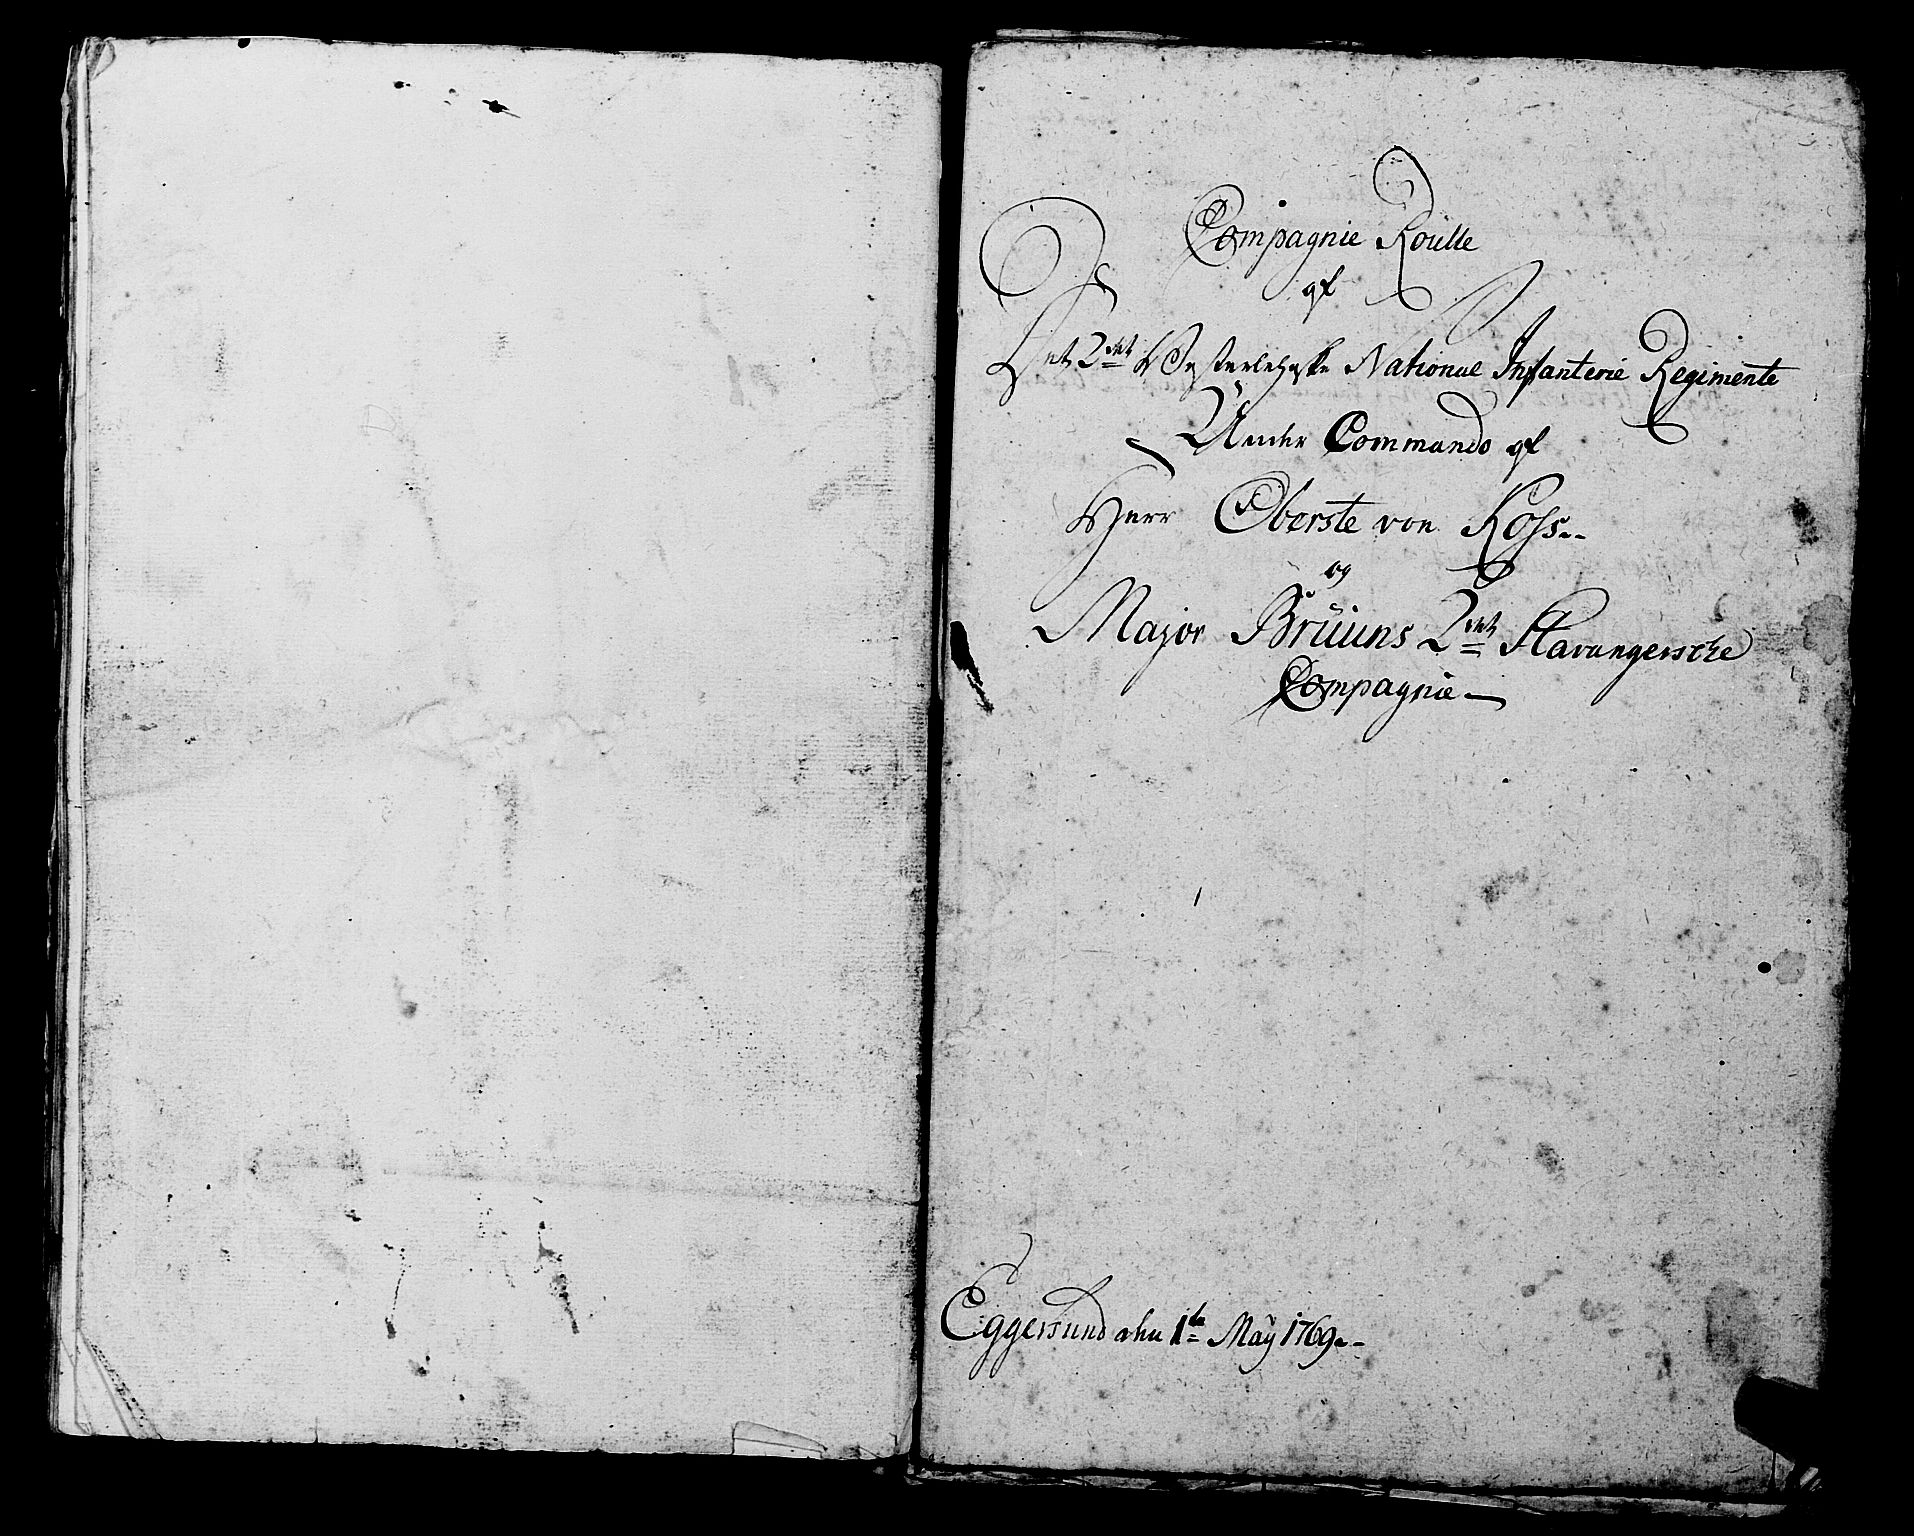 Compagnie Roulle
af
Det 2det Vesterlehnske National Infanterie Regimente
Under Commando af
Herr Oberste von Koss--
og
Major Brüüns 2det Stavangersche
Compagnie
Eggersund den 1te Maÿ 1769--